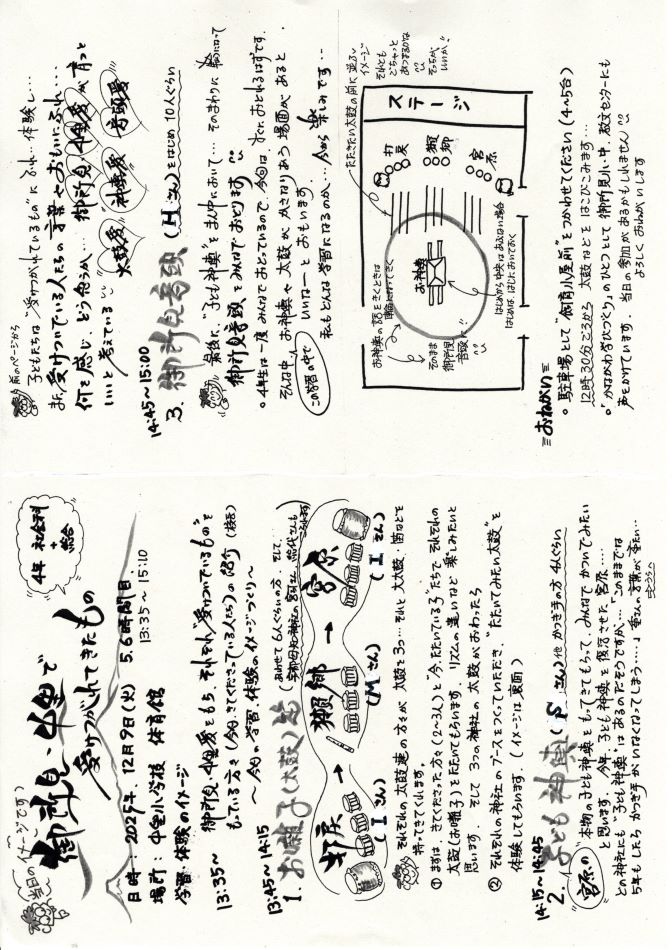 当日のイメージです
御所見・中里で
受けつがれてきたもの
4年 社会科
+
総合
日時：2025年 12月9日(火) 5.6時間目
13:35～15:10
場所：中里小学校 体育館
学習・体験のイメージ
13:35～ 御所見・中里愛をもち、それぞれ"受けついでいるもの"を
もっている方々(今日、きてくださっている人たち)の紹介(校長)
～今日の学習、体験のイメージづくり～
13:45～14:15
1. お囃子(太鼓)等
(あわせて6人ぐらいの方、そして、
打戻 → 獺郷 → 宮原
(Iさん) (Mさん) (Iさん)
それぞれの太鼓連の方々が 太鼓を3つ…それと大太鼓・笛などを
持ってきてくれます。
① まずは、きてくださった方々(2~3人)と"今、たたいている子"たちで それぞれの
太鼓(お囃子)をたたいてもらいます。リズムの違いなど楽しみたいと
思います。そして 3つの神社の太鼓がおわったら
② それぞれの神社のブースをつくっていただき、"たたいてみたい太鼓"を
体験してもらいます。(イメージは裏面)
14:15～14:45
2. 子ども神輿(Sさん)他 かつぎ手の方 4人ぐらい
宮原の 本物の子ども神輿をもってきてもらって、みんなでかついでみたい
と思います。今年、子ども神輿を復活させた、宮原……
どの神社にも 子ども神輿はあるのだそうですが…このままでは
5年もしたら かつぎ手がいなくなってしまう…」
前のページから
子どもたちは"受けつがれているもの"にふれ…体験し…
また、受けついでいる人たちの言葉やおもいにふれ…
何を感じ、どう思うか… 御所見・中里愛が育つと
いいと考えている
太鼓愛 神輿愛 音頭愛
14:45～15:00
3. 御所見音頭(Hさん)をはじめ 10人ぐらい
最後に、"子ども神輿"をまん中において…そのまわりに輪になって
御所見音頭をみんなでおどります
。4年生は一度みんなでおどっているので、今回は、すぐにおどれるはずです。
そんな中、お神輿や太鼓がかさなりあう場面があると
いいなーとおもいます。
この学習の中で 私もどんな学習になるのか…今から楽しみです…
たたきたい太鼓の前に並ぶイメージ
それとも
ごちゃっと
あつまるのか
そっちが
いいか!!
ステージ
打戻
獺郷
宮原
お神輿
お神輿の話をきくときは
そのまま
御所見
音頭へ
はじめから中央はあぶない場合
はじめは、はじにおいておく
＝おねがい＝
。駐車場として"飼育小屋前"をつかわせてください(4～5台)
12時30分ごろから 太鼓などをはこびこみます…
。"かながわ学びづくり"のひとつとして 御所見小・中、教文センターにも
声をかけています。当日の参加があるかもしれません
よろしくおねがいします